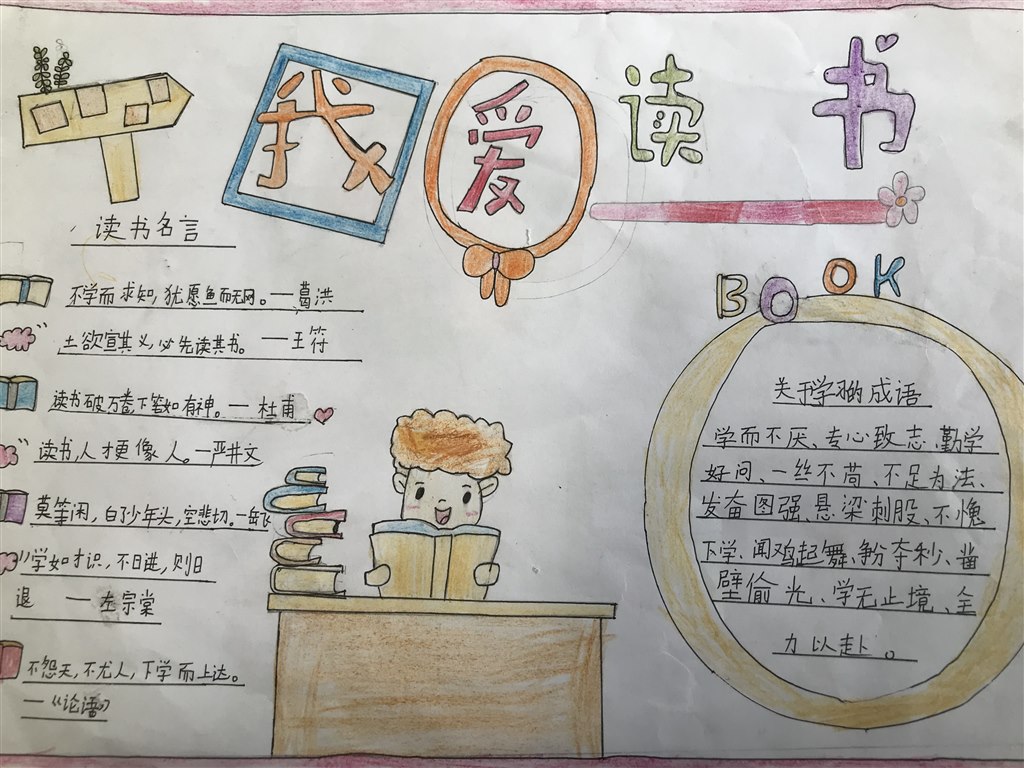 我爱读书
读书名言
不学而求知，犹愿鱼而无网。—葛洪
土欲宣其义，必先读其书。—王符
读书破万卷下笔如有神。—杜甫
读书，人才更像人。—严井文
莫等闲，白了少年头，空悲切。—岳飞
学如才识，不日进，则日
退 —左宗堂
不怨天，不尤人，下学而上达。
—《论语》
BOOK
关于学习的成语
学而不厌、专心致志、勤学
好问、一丝不苟、不足为法、
发奋图强、悬梁刺股、不愧
下学、闻鸡起舞、争分夺秒、凿
壁偷光、学无止境、全
力以赴。